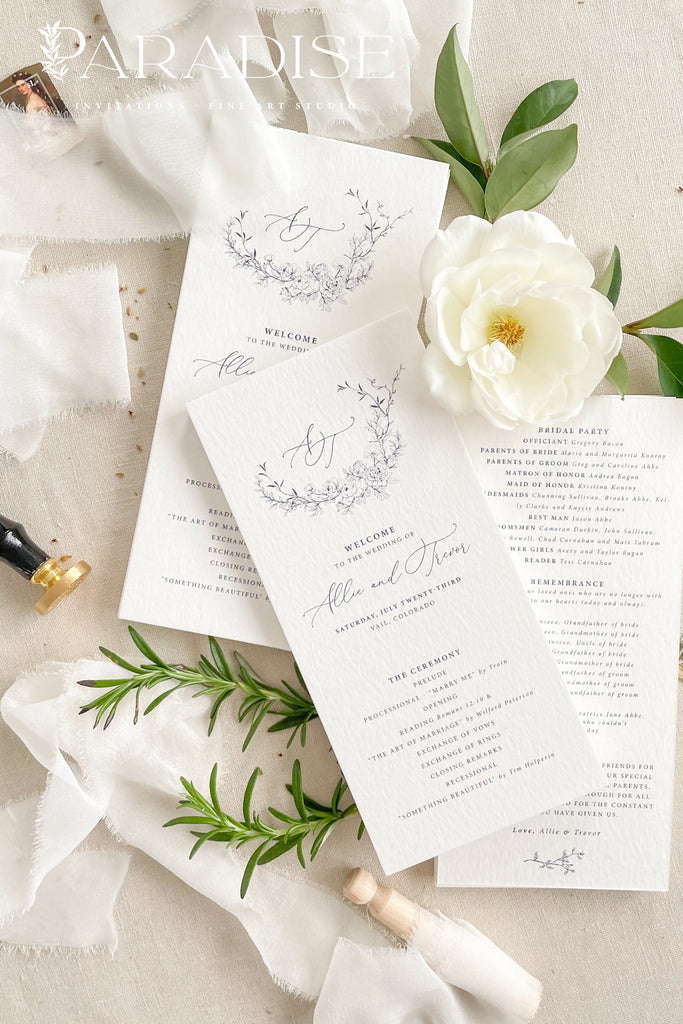 PARADISE
INVITATIONS · FINE ART STUDIO
AT
WELCOME
TO THE WEDDING
Allie
PROCESS
READING
"THE ART OF MAR
EXCHANGE
EXCHANGE
CLOSING
RECESS
"SOMETHING BEAUTIFUL" by
AT
WELCOME
TO THE WEDDING OF
Allie and Trevor
SATURDAY, JULY TWENTY-THIRD
VAIL, COLORADO
THE CEREMONY
PRELUDE
PROCESSIONAL - "MARRY ME" by Train
OPENING
READING Romans 12:10 &
"THE ART OF MARRIAGE" by Wilferd Peterson
EXCHANGE OF VOWS
EXCHANGE OF RINGS
CLOSING REMARKS
RECESSIONAL
"SOMETHING BEAUTIFUL" by Tim Halperin
BRIDAL PARTY
OFFICIANT Gregory Bacon
PARENTS OF BRIDE Mario and Margarita Kontny
PARENTS OF GROOM Greg and Caroline Abbe
MATRON OF HONOR Andrea Eagan
MAID OF HONOR Kristina Kontny
DESMAIDS Channing Sullivan, Brooke Abbe, Kel-
ly Clarke and Kaycie Andrews
BEST MAN Jason Abbe
OMSMEN Cameron Durkin, John Sullivan,
Rowell, Chad Carnahan and Matt Tabram
WER GIRLS Avery and Taylor Eagan
READER Tess Carnahan
REMEMBRANCE
our loved ones who are no longer with
in our hearts today and always:
Grandfather of bride
Grandmother of bride
Uncle of bride
Grandfather of groom
Grandmother of groom
Grandfather of groom
eatrice Jane Abbe,
who couldn't
day.
FRIENDS FOR
OUR SPECIAL
PARENTS,
NOUGH FOR ALL
D FOR THE CONSTANT
YOU HAVE GIVEN US.
Love, Allie & Trevor